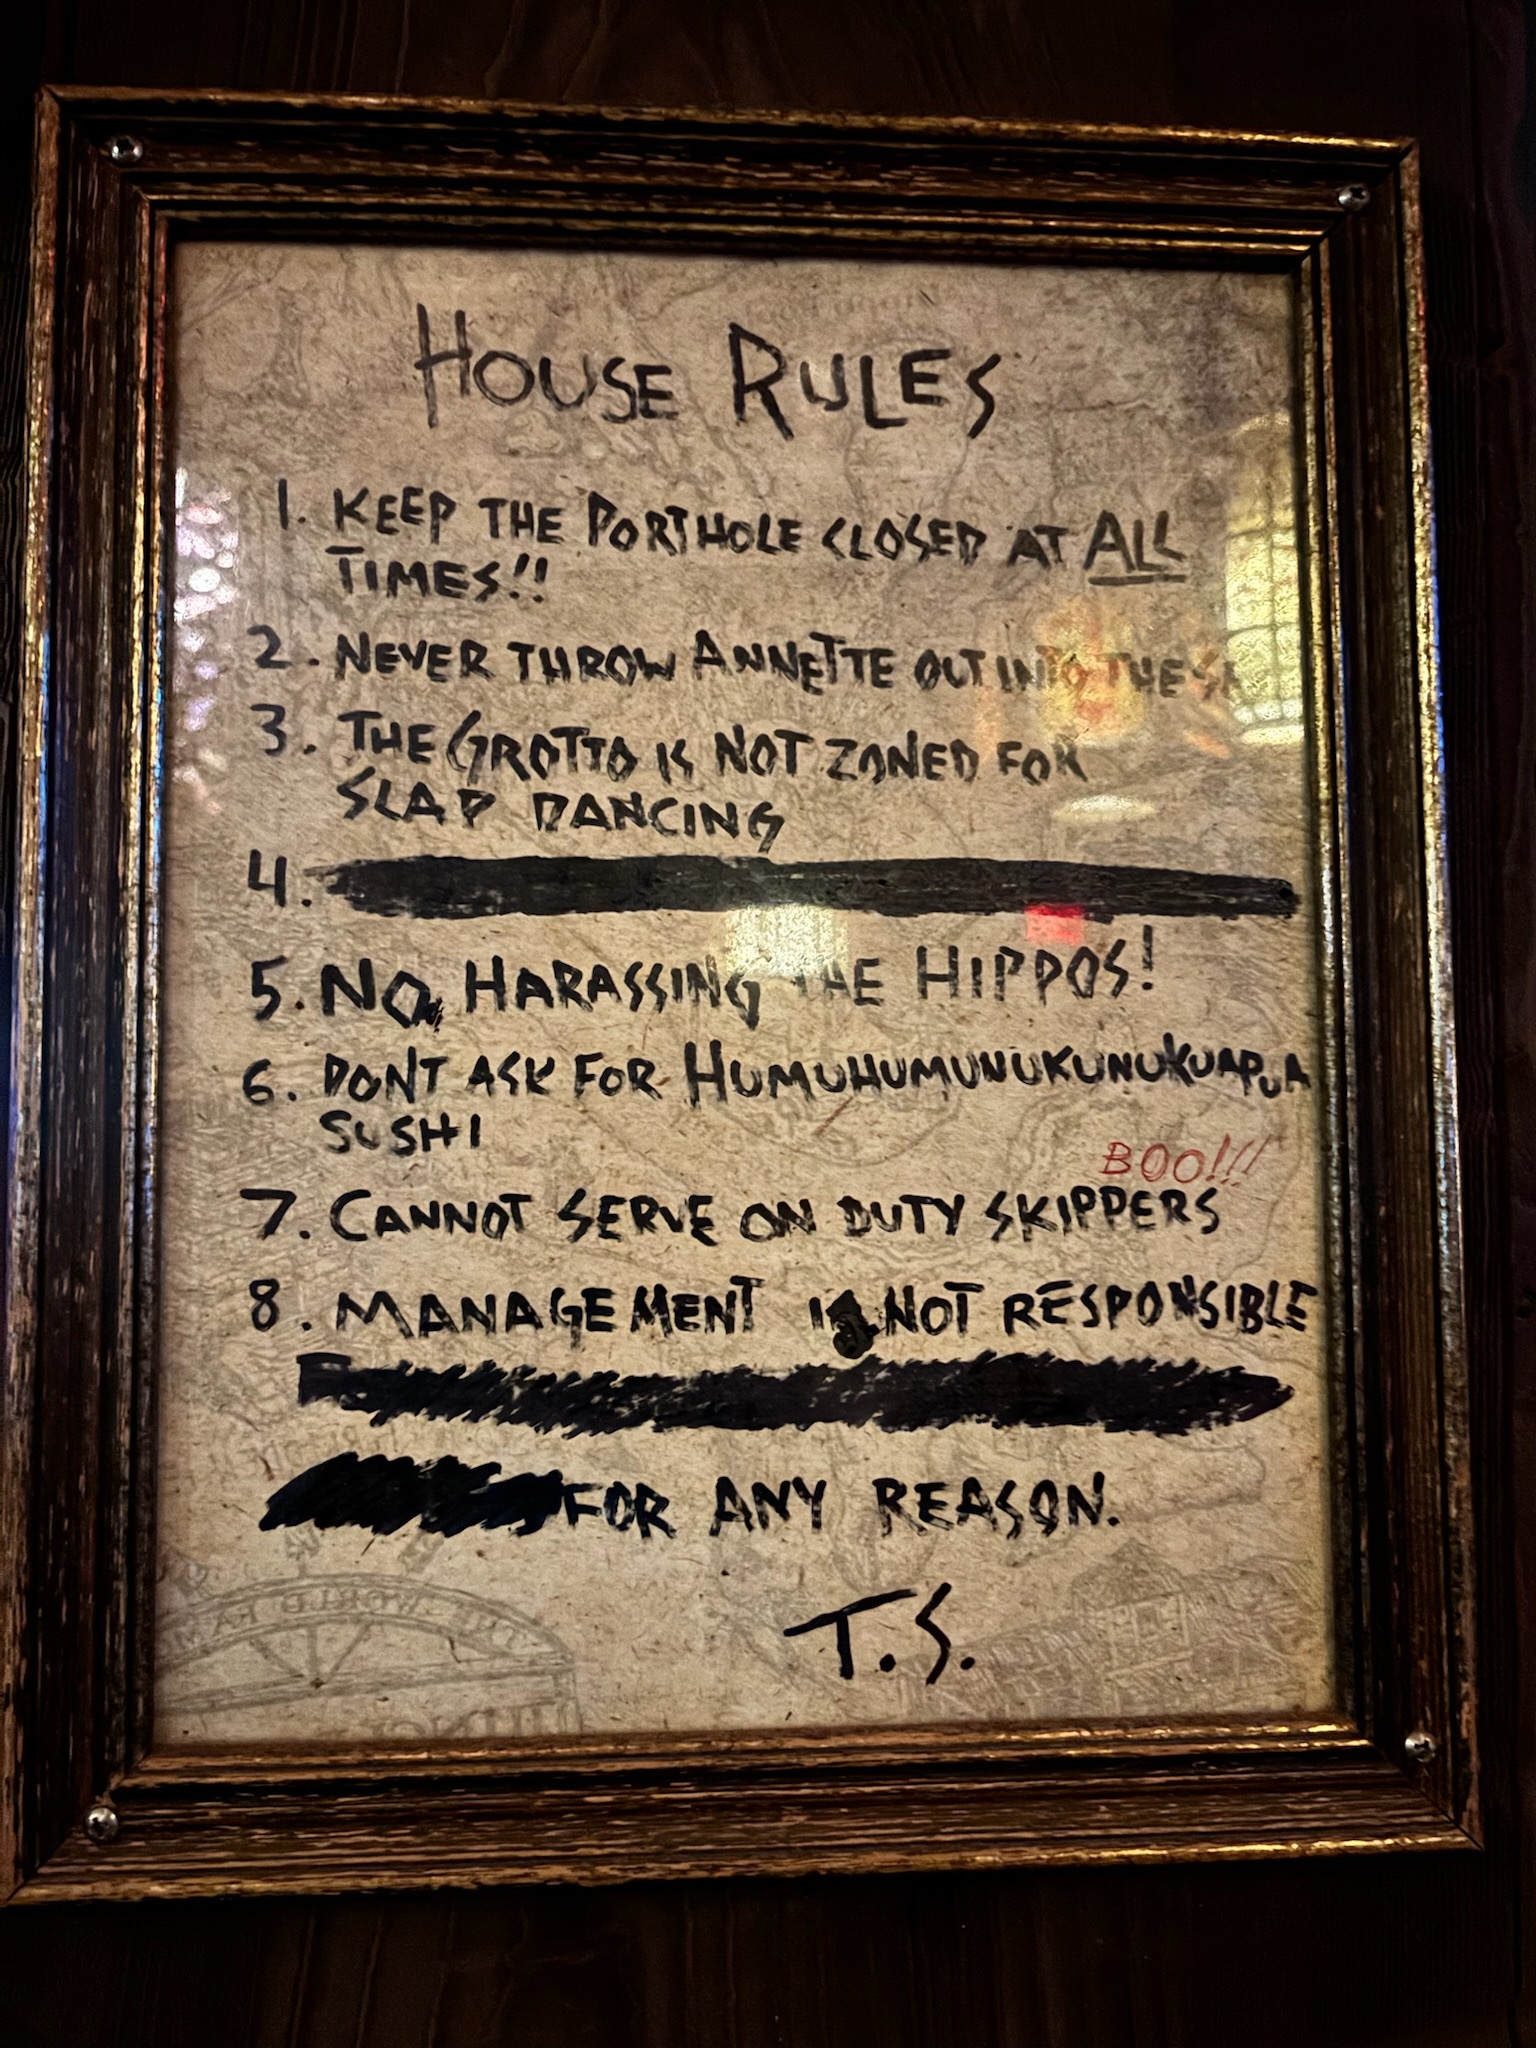 HOUSE RULES
1. KEEP THE PORTHOLE CLOSED AT ALL
TIMES!!
2. NEVER THROW ANNETTE OUT INTO THE SEA
3. THE GROTTO IS NOT ZONED FOR
SLAP DANCING
4.
5. NO HARASSING THE HIPPOS!
6. DONT ASK FOR HUMUHUMUNUKUNUKUAPUA
SUSHI
BOO!!!
7. CANNOT SERVE ON DUTY SKIPPERS
8. MANAGEMENT IS NOT RESPONSIBLE
FOR ANY REASON.
T.S.
THE WORLD FAM